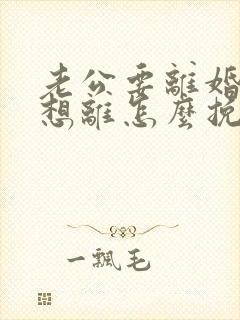 老公要離婚
想離怎麼挽
一飄毛